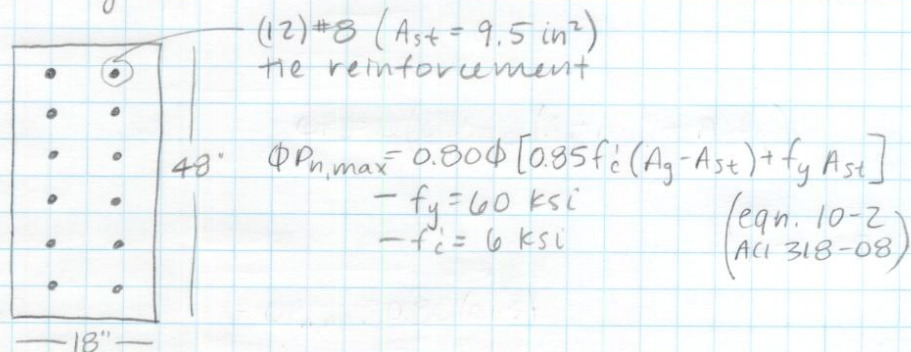 (12) #8 (Ast = 9.5 in²)
tie reinforcement
48"
ΦPn,max = 0.80Φ [0.85f'c (Ag - Ast) + fy Ast]
- fy = 60 ksi
- f'c = 6 ksi
(eqn. 10-2
ACI 318-08)
18"